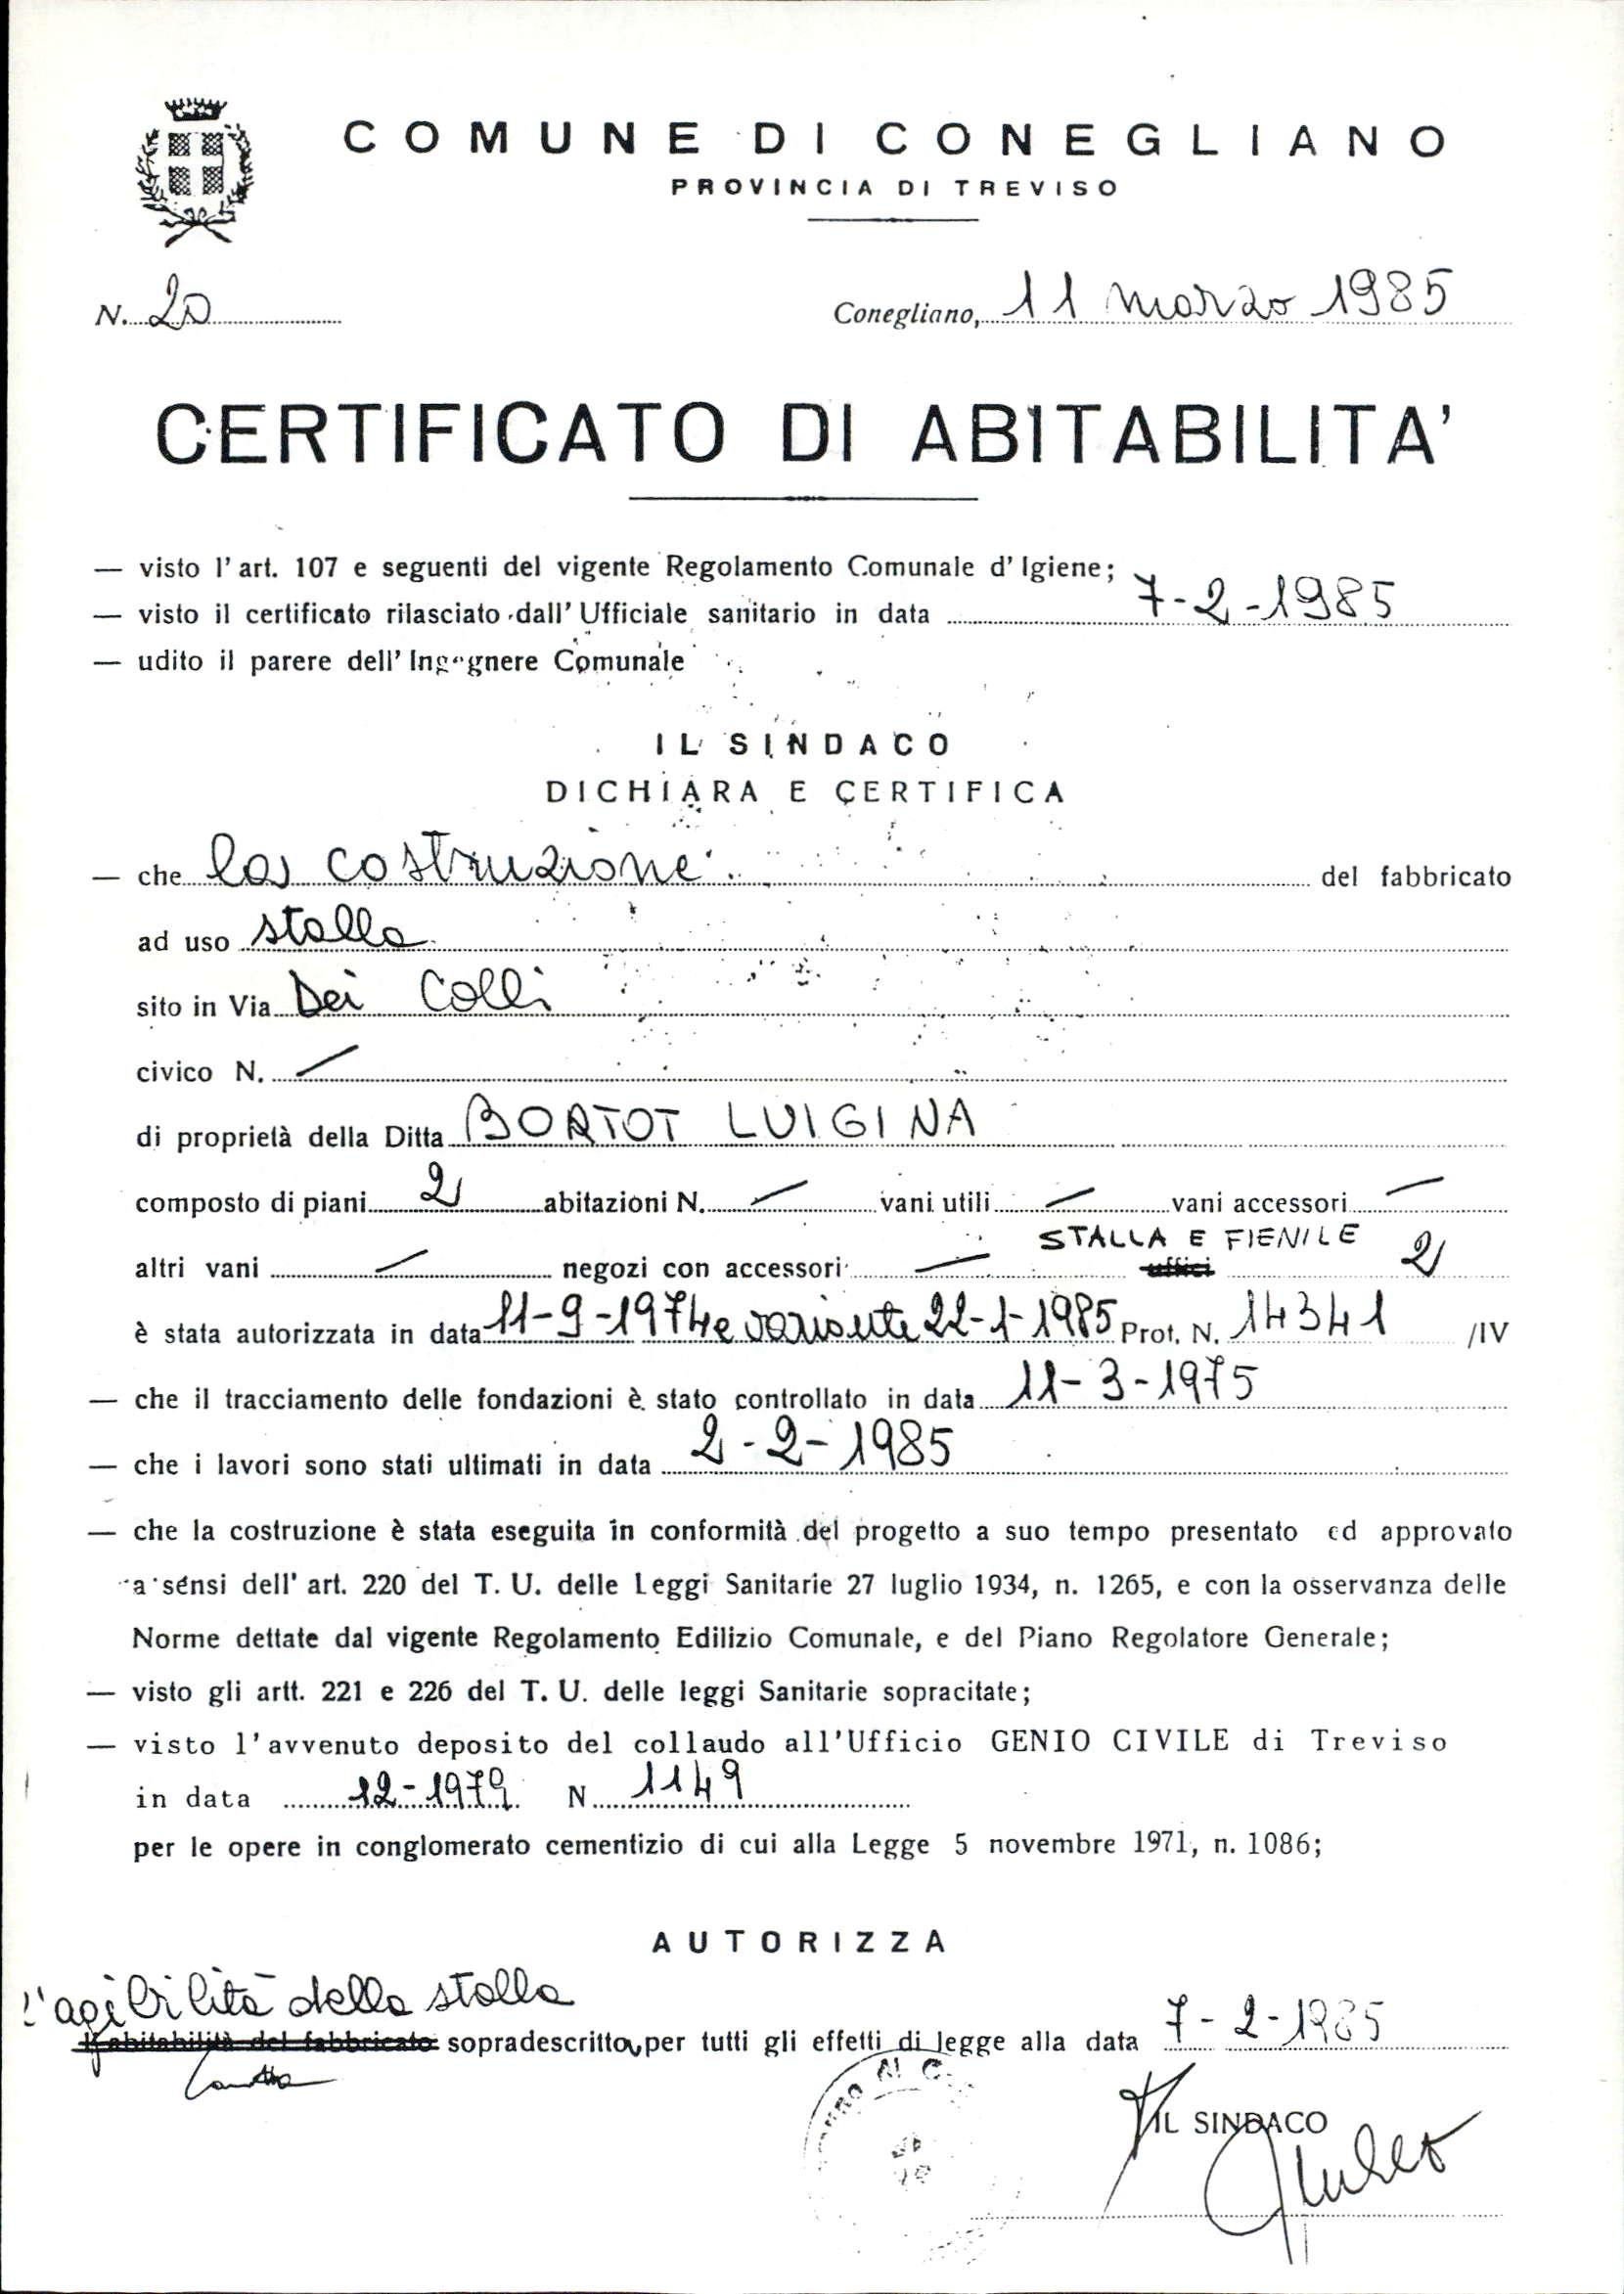 COMUNE DI CONEGLIANO
PROVINCIA DI TREVISO
N. 20 Conegliano, 11 marzo 1985
CERTIFICATO DI ABITABILITA'
— visto l'art. 107 e seguenti del vigente Regolamento Comunale d'Igiene;
— visto il certificato rilasciato dall'Ufficiale sanitario in data 7-2-1985
— udito il parere dell'Ingegnere Comunale
IL SINDACO
DICHIARA E CERTIFICA
— che la costruzione del fabbricato
ad uso stalla
sito in Via Dei Colli
civico N. /
di proprietà della Ditta BORTOT LUIGINA
composto di piani 2 abitazioni N. / vani utili / vani accessori /
STALLA E FIENILE 2
altri vani / negozi con accessori / uffici
è stata autorizzata in data 11-9-1974 e variante 22-1-1985 Prot. N. 14341 /IV
— che il tracciamento delle fondazioni è stato controllato in data 11-3-1975
— che i lavori sono stati ultimati in data 2-2-1985
— che la costruzione è stata eseguita in conformità del progetto a suo tempo presentato ed approvato
a sensi dell'art. 220 del T. U. delle Leggi Sanitarie 27 luglio 1934, n. 1265, e con la osservanza delle
Norme dettate dal vigente Regolamento Edilizio Comunale, e del Piano Regolatore Generale;
— visto gli artt. 221 e 226 del T. U. delle leggi Sanitarie sopracitate;
— visto l'avvenuto deposito del collaudo all'Ufficio GENIO CIVILE di Treviso
in data 12-1979 N 1149
per le opere in conglomerato cementizio di cui alla Legge 5 novembre 1971, n. 1086;
AUTORIZZA
l'agibilità della stalla
l'abitabilità del fabbricato sopradescritta, per tutti gli effetti di legge alla data 7-2-1985
IL SINDACO